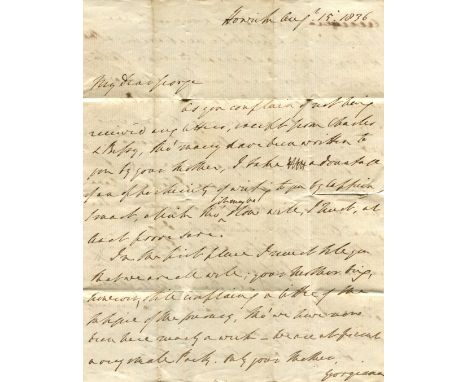 Norwich Augt. 15. 1836
My Dear George
As you complain of not being
received any letters, except from Charles
& Betsy, tho' many have been written to
you by your Mother, I take advantage
of an opportunity of writing to you by
which tho' it may be slow will, I trust, at
least prove sure.
In the first place I must tell you
that we are all well; your Mother being,
however, still complaining a little of the
fatigue of the journey, tho' we have now
been here nearly a week - we are at present
a very small Party. only your Mother,
Georgiana